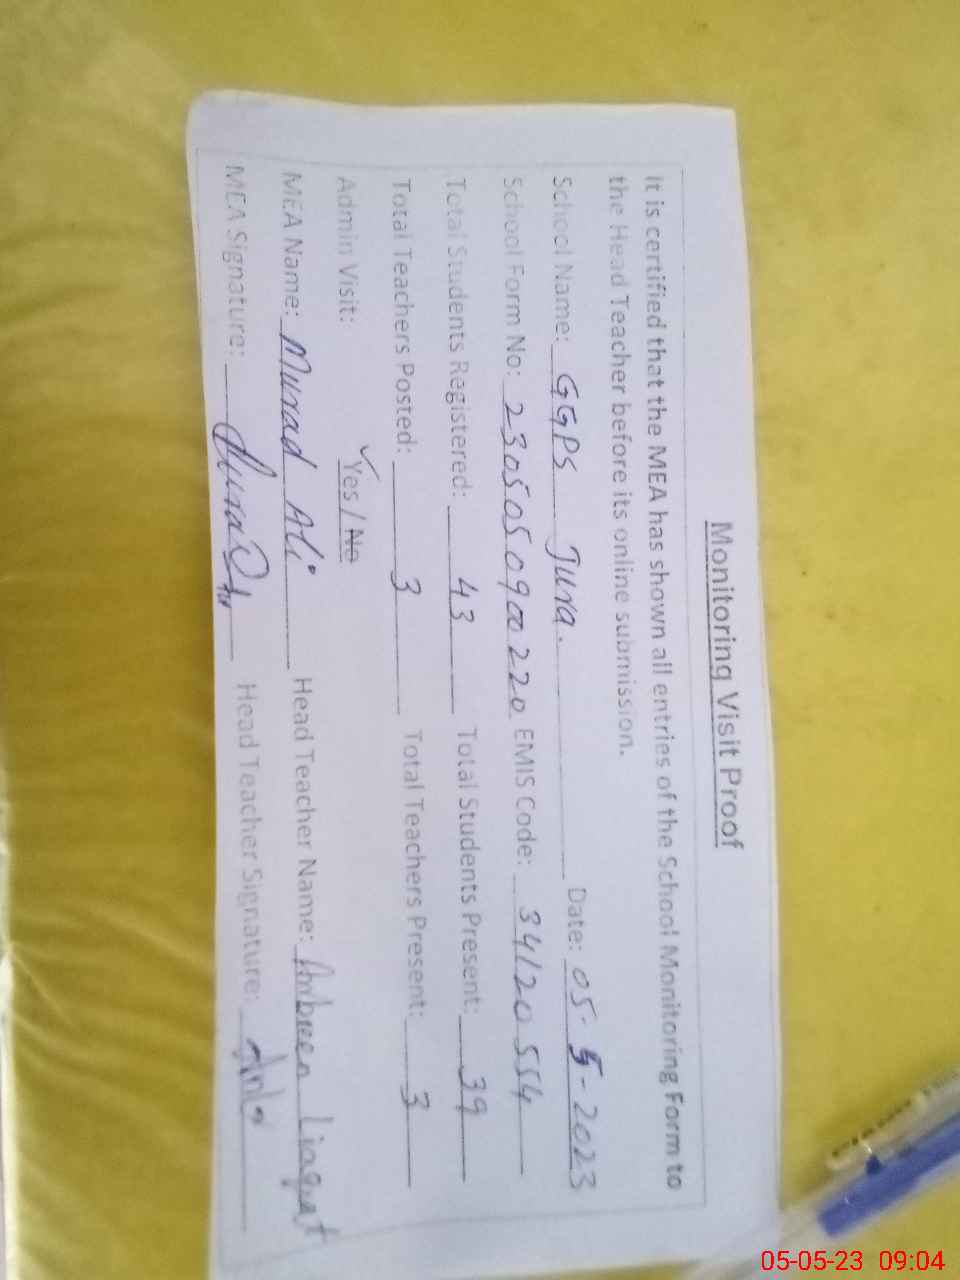 Monitoring Visit Proof
It is certified that the MEA has shown all entries of the School Monitoring Form to
the Head Teacher before its online submission.
School Name: GGPS Jura. Date: 05-5-2023
School Form No: 230505090220 EMIS Code: 34120554
Total Students Registered: 43 Total Students Present: 39
Total Teachers Posted: 3 Total Teachers Present: 3
Admin Visit: ✓Yes / No
MEA Name: Murad Ali Head Teacher Name: Ambreen Liaqat
MEA Signature: Head Teacher Signature:
05-05-23 09:04